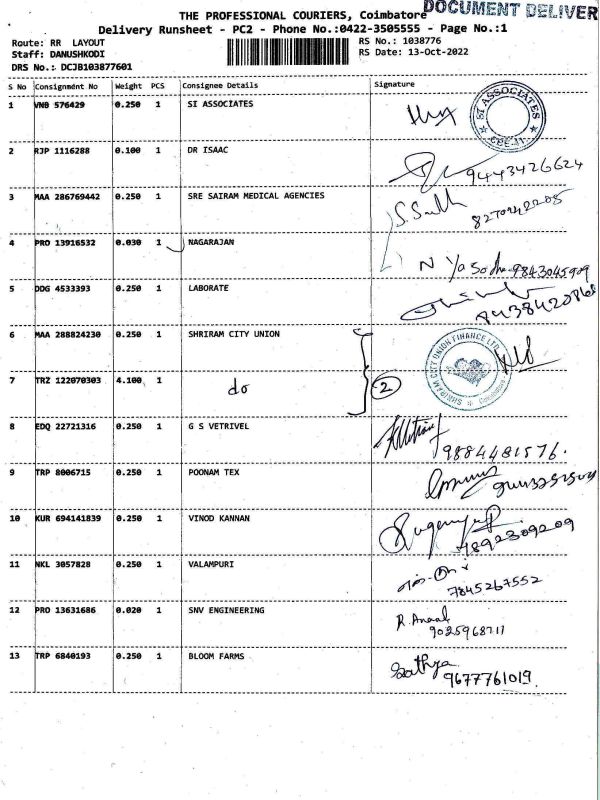 DOCUMENT DELIVER
THE PROFESSIONAL COURIERS, Coimbatore
Delivery Runsheet - PC2 - Phone No.:0422-3505555 - Page No.:1
Route: RR LAYOUT
RS No.: 1038776
Staff: DANUSHKODI
RS Date: 13-Oct-2022
DRS No.: DCJB103877601
S No Consignment No Weight PCS Consignee Details Signature
1 VNB 576429 0.250 1 SI ASSOCIATES
SI ASSOCIATES
2 RJP 1116288 0.100 1 DR ISAAC
9443426624
3 MAA 286769442 0.250 1 SRE SAIRAM MEDICAL AGENCIES
4 PRO 13916532 0.030 1 NAGARAJAN
9843045909
5 DDG 4533393 0.250 1 LABORATE
6 MAA 288824230 0.250 1 SHRIRAM CITY UNION
SHRIRAM CITY UNION FINANCE LTD
Coimbatore
7 TRZ 122070303 4.100 1 do 2
8 EDQ 22721316 0.250 1 G S VETRIVEL
9884481576.
9 TRP 8006715 0.250 1 POONAM TEX
10 KUR 694141839 0.250 1 VINOD KANNAN
7892309209
11 NKL 3057828 0.250 1 VALAMPURI
7845267552
12 PRO 13631686 0.020 1 SNV ENGINEERING
13 TRP 6840193 0.250 1 BLOOM FARMS
Sathya
9677761019.